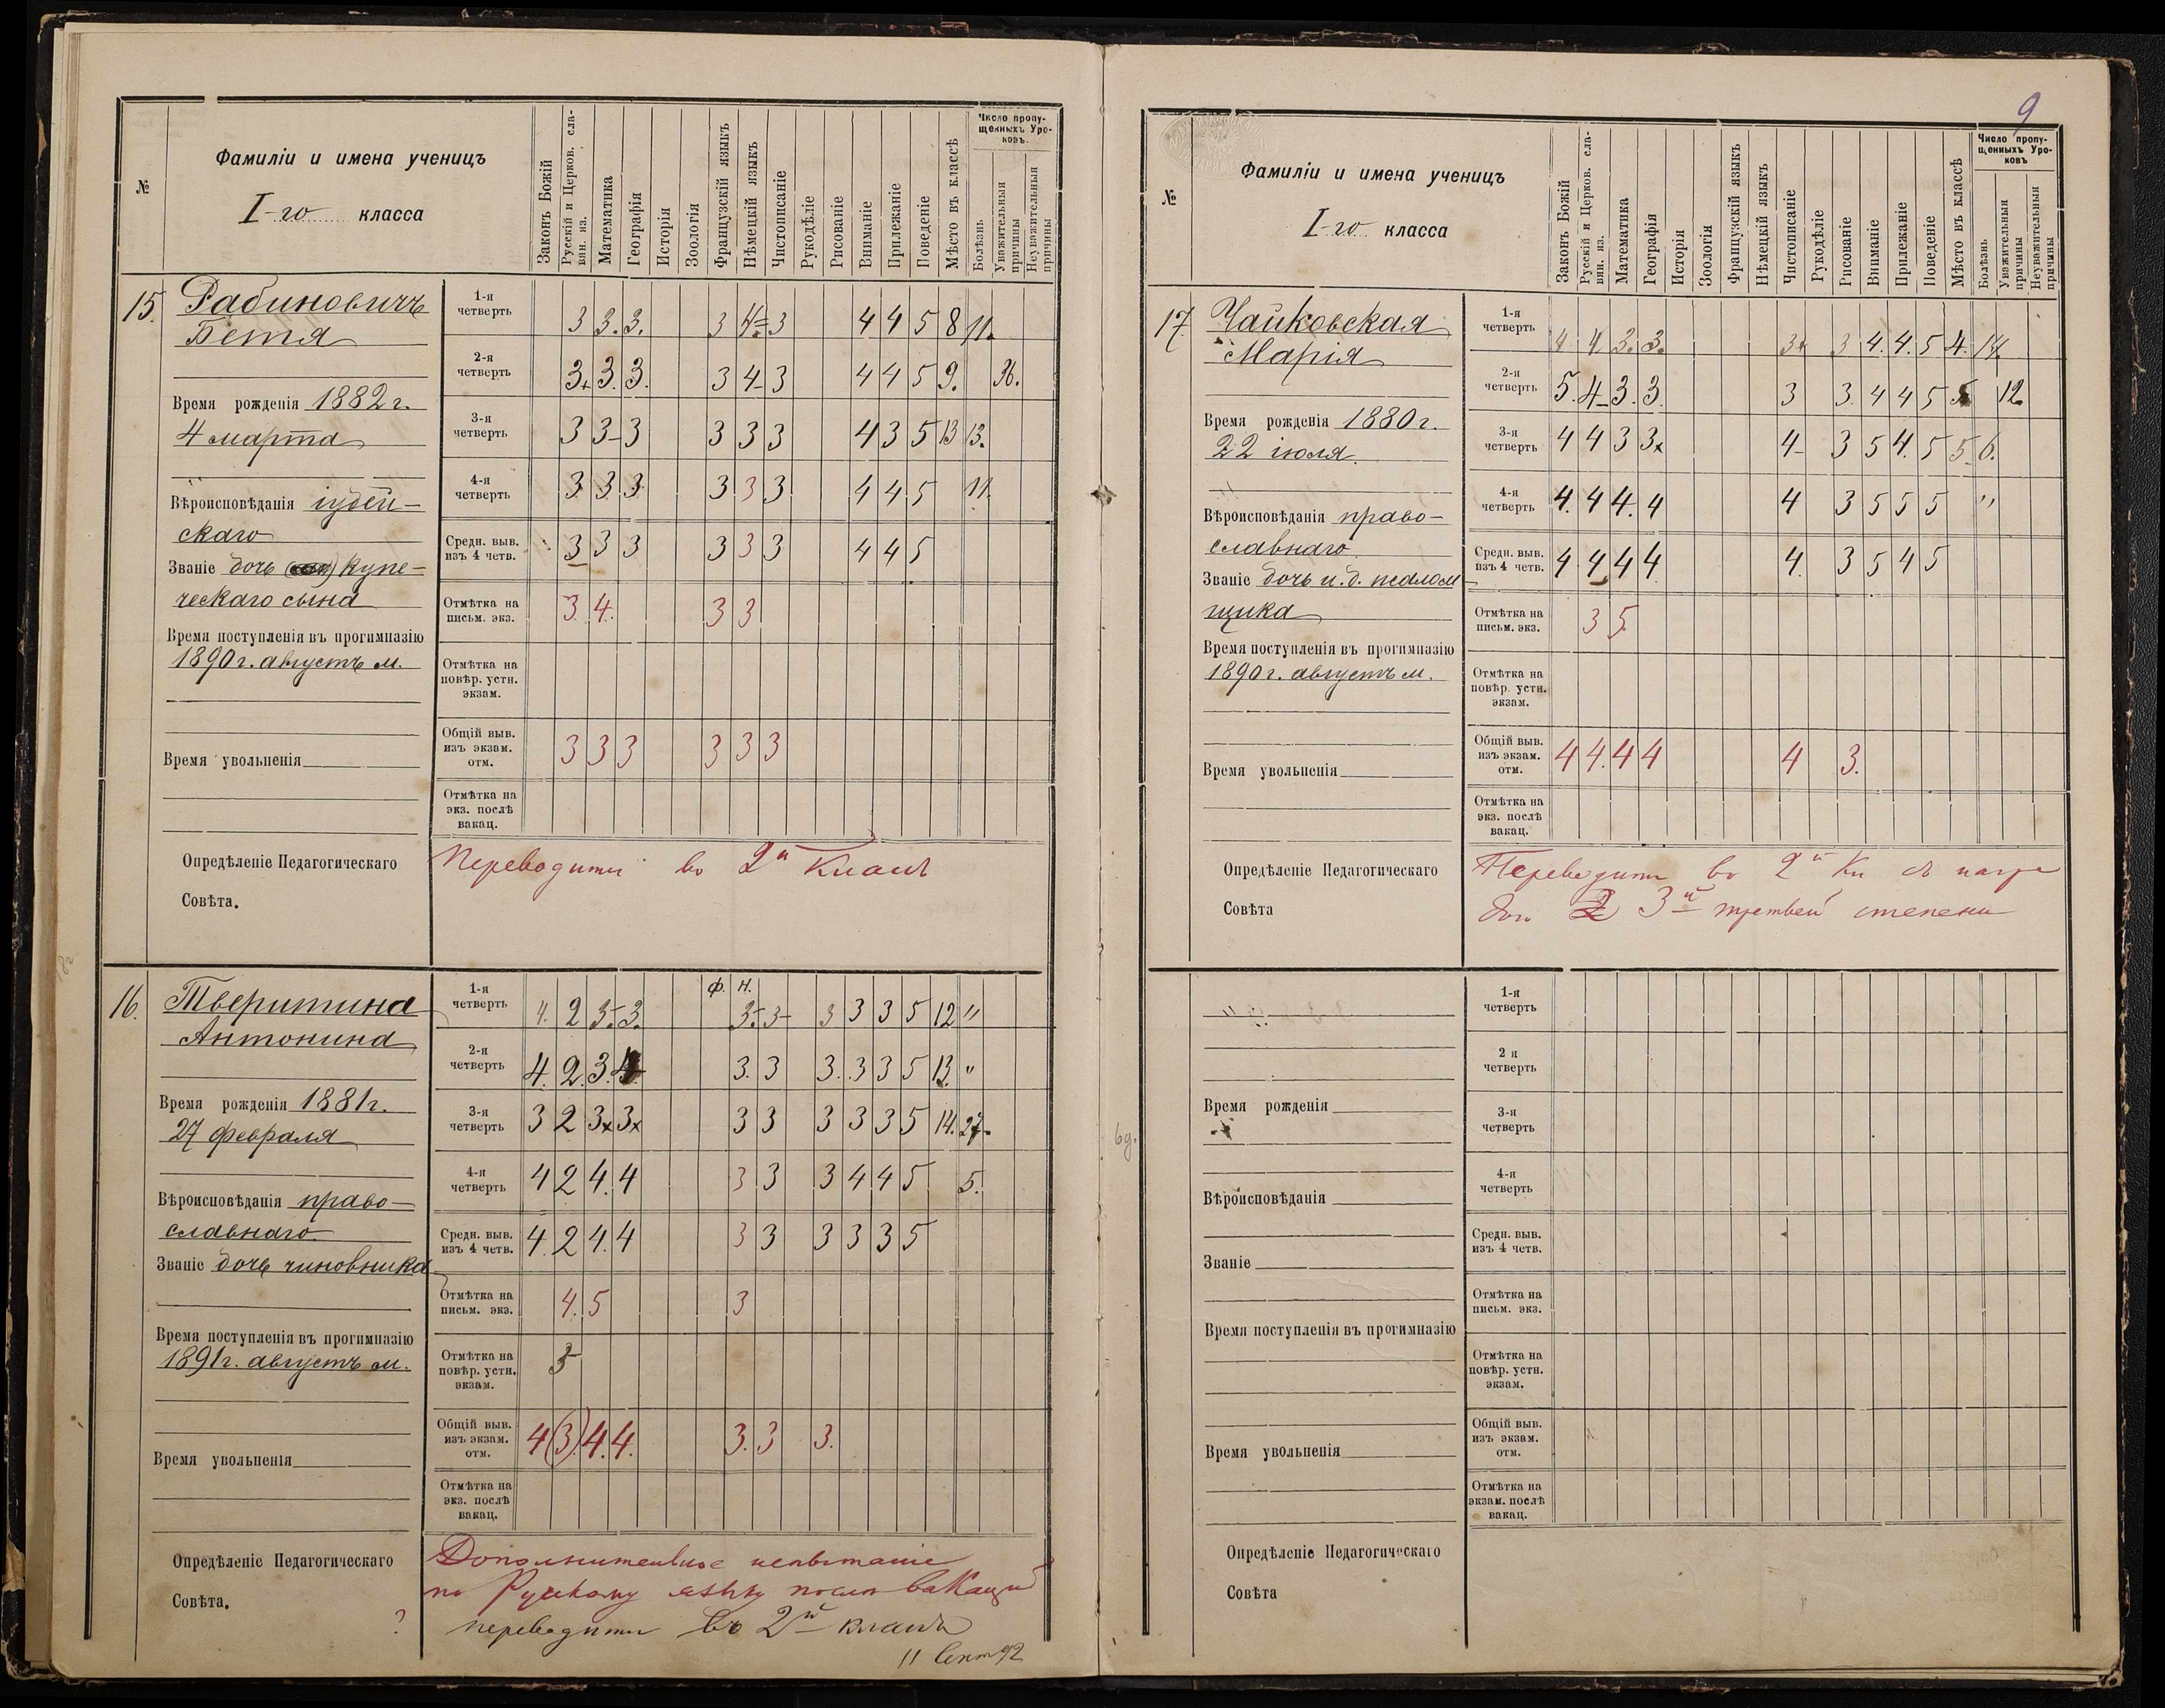 №
Фамиліи и имена ученицъ
I-го класса
Законъ Божій
Русскій и Церков. сла-
вян. яз.
Математика
Географія
Исторія
Зоологія
Французскій языкъ
Нѣмецкій языкъ
Чистописаніе
Рукодѣліе
Рисованіе
Вниманіе
Прилежаніе
Поведеніе
Мѣсто въ классѣ
Число пропу-
щенныхъ Уро-
ковъ.
Болѣзнь
Уважительныя
причины
Неуважительныя
причины
15.
Рабиновичъ
Бетя
Время рожденія 1882 г.
4 марта
Вѣроисповѣданія іудей-
скаго
Званіе дочь купе-
ческаго сына
Время поступленія въ прогимназію
1890 г. августъ м.
Время увольненія
1-я четверть 3 3. 3. 3 4= 3 4 4 5 8 11.
2-я четверть 3+ 3. 3. 3 4- 3 4 4 5 9. 36.
3-я четверть 3 3- 3 3 3 3 4 3 5 13 13.
4-я четверть 3 3 3 3 3 3 4 4 5 11.
Средн. выв. изъ 4 четв. 3 3 3 3 3 3 4 4 5
Отмѣтка на письм. экз. 3. 4. 3 3
Отмѣтка на повѣр. устн. экзам.
Общій выв. изъ экзам. отм. 3 3 3 3 3 3
Отмѣтка на экз. послѣ вакац.
Опредѣленіе Педагогическаго
Совѣта.
Переводити во 2й классъ
16.
Тверитина
Антонина
Время рожденія 1881 г.
27 февраля
Вѣроисповѣданія право-
славнаго
Званіе дочь чиновника
Время поступленія въ прогимназію
1891 г. августъ м.
Время увольненія
ф. н.
1-я четверть 4. 2 3-. 3. 3-. 3- 3 3 3 5 12 "
2-я четверть 4. 2. 3. 3. 3 3. 3 3 5 13. "
3-я четверть 3 2 3x 3x 3 3 3 3 3 5 14. 27-
4-я четверть 4 2 4. 4 3 3 3 4 4 5 5.
Средн. выв. изъ 4 четв. 4. 2 4. 4 3 3 3 3 3 5
Отмѣтка на письм. экз. 4. 5 3
Отмѣтка на повѣр. устн. экзам. 3
Общій выв. изъ экзам. отм. 4 (3) 4. 4. 3. 3 3.
Отмѣтка на экз. послѣ вакац.
Опредѣленіе Педагогическаго
Совѣта.
?
Дополнительное испытаніе
по Русскому языку послѣ вакацій
переводити въ 2й классъ
11 Сент 92
9
№
Фамиліи и имена ученицъ
I-го класса
Законъ Божій
Русскій и Церков. сла-
вян. яз.
Математика
Географія
Исторія
Зоологія
Французскій языкъ
Нѣмецкій языкъ
Чистописаніе
Рукодѣліе
Рисованіе
Вниманіе
Прилежаніе
Поведеніе
Мѣсто въ классѣ
Число пропу-
щенныхъ Уро-
ковъ
Болѣзнь
Уважительныя
причины
Неуважительныя
причины
17.
Чайковская
Марія
Время рожденія 1880 г.
22 іюля
Вѣроисповѣданія право-
славнаго
Званіе дочь и. д. псалом-
щика
Время поступленія въ прогимназію
1890 г. августъ м.
Время увольненія
1-я четверть 4 4 3. 3. 3x 3 4. 4. 5 4. 14.
2-я четверть 5. 4- 3. 3. 3 3. 4 4 5 5 12.
3-я четверть 4 4 3 3x 4- 3 5 4. 5 5. 6.
4-я четверть 4. 4 4. 4 4 3 5 5 5 "
Средн. выв. изъ 4 четв. 4 4 4 4 4. 3 5 4 5
Отмѣтка на письм. экз. 3 5.
Отмѣтка на повѣр. устн. экзам.
Общій выв. изъ экзам. отм. 4 4. 4 4 4 3.
Отмѣтка на экз. послѣ вакац.
Опредѣленіе Педагогическаго
Совѣта
Переводити во 2й Кл съ награ
дою 3й третьей степени
1-я четверть
2 я четверть
3-я четверть
4-я четверть
Средн. выв. изъ 4 четв.
Отмѣтка на письм. экз.
Отмѣтка на повѣр. устн. экзам.
Общій выв. изъ экзам. отм.
Отмѣтка на экзам. послѣ вакац.
Время рожденія
Вѣроисповѣданія
Званіе
Время поступленія въ прогимназію
Время увольненія
Опредѣленіе Педагогическаго
Совѣта